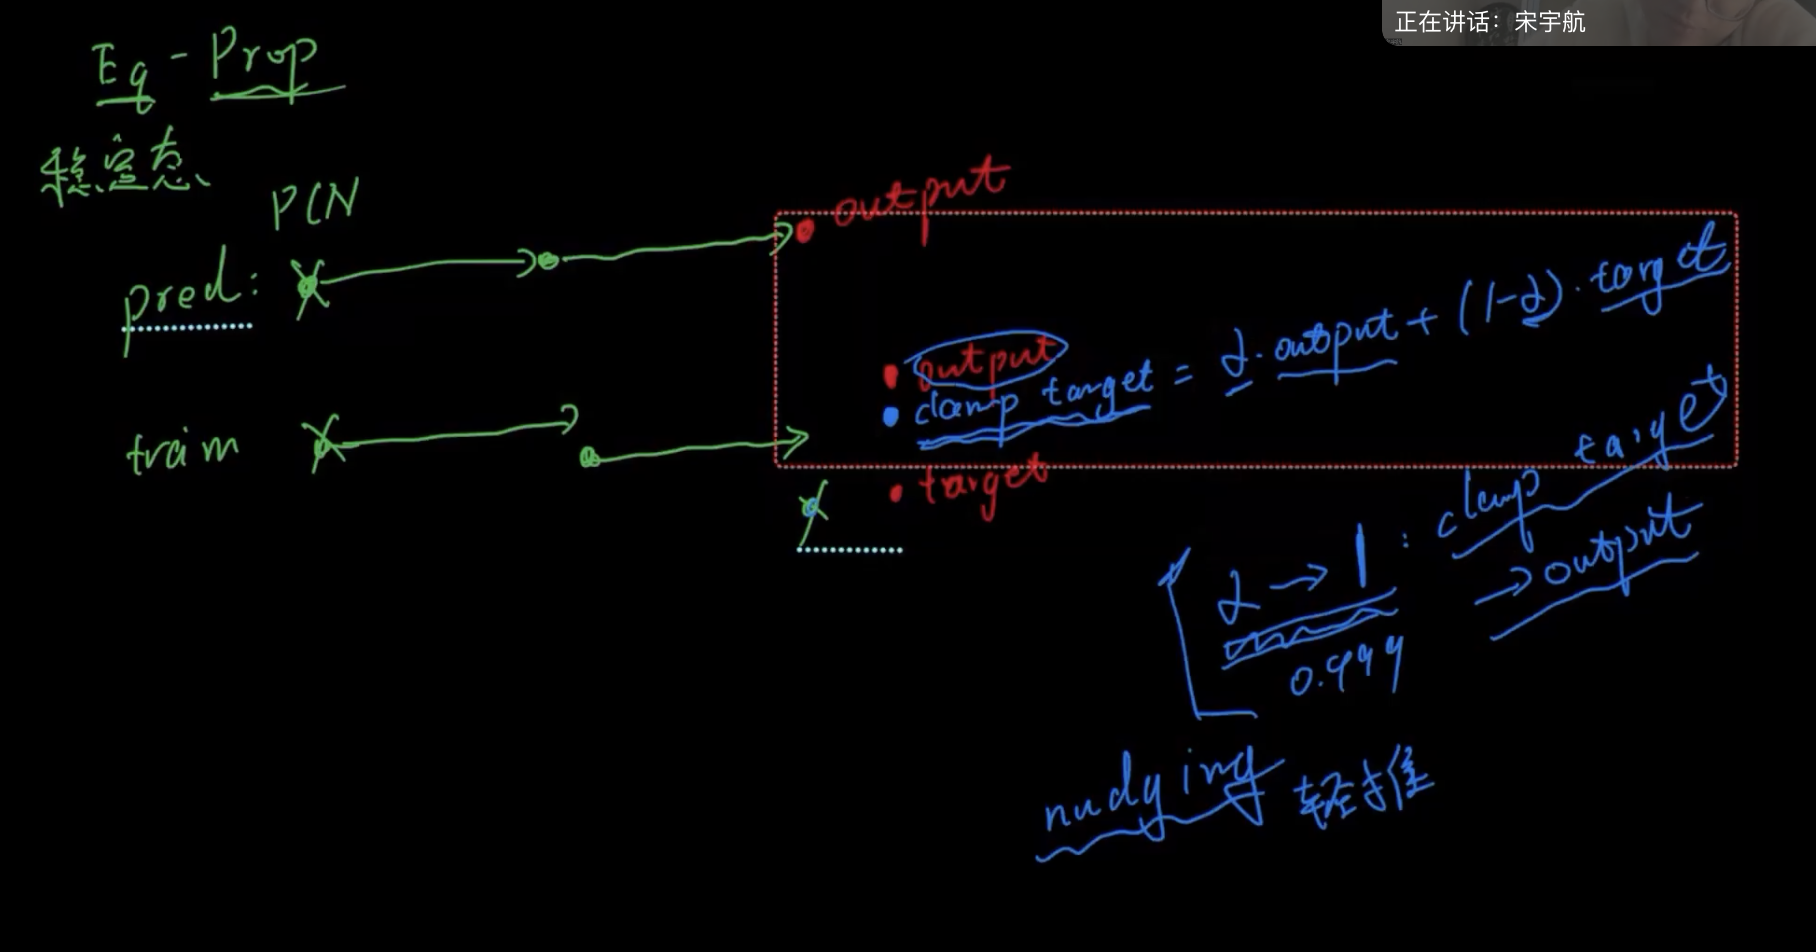 正在讲话：宋宇航
Eq - Prop
稳定态
PCN
output
pred:
output
clamp target = α · output + (1-α) · target
train
target
α → 1 : clamp target
→ output
0.999
nudging 轻推